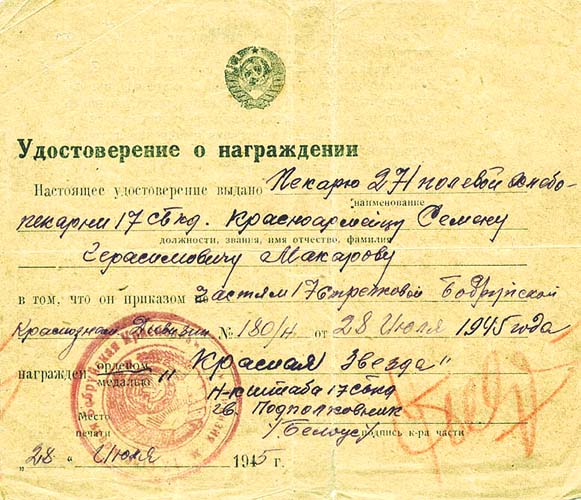 Удостоверение о награждении
Настоящее удостоверение выдано Пекарю 271 полевой хлебо-
наименование
пекарни 17 сбкд. Красноармейцу Семену
должности, звания, имя отчество, фамилия
Герасимовичу Макарову
в том, что он приказом по частям 17 стрелковой Бобруйской
Краснознам Дивизии № 180/н от 28 Июля 1945 года
награжден орденом
медалью "Красная Звезда"
Н-к штаба 17 сбкд
гв. Подполковник
Место
печати
/Белоус/
подпись к-ра части
"28" Июля 1945 г.